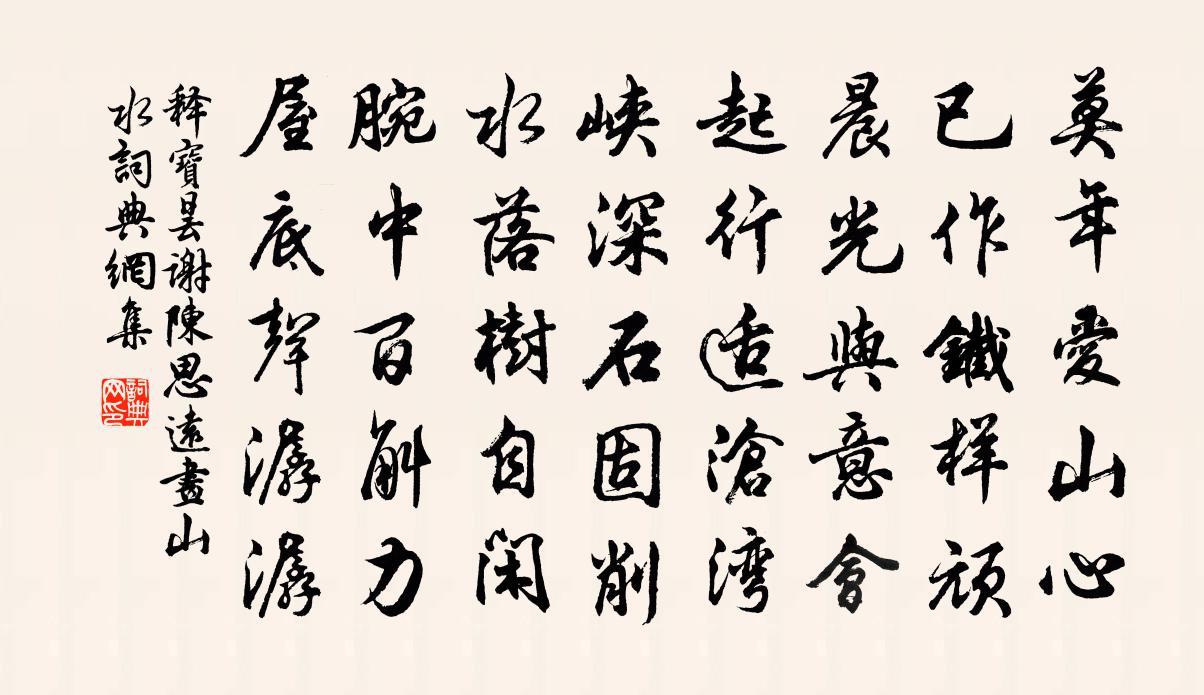 莫年愛山心
已作鐵样頑
晨光與意會
起行适滄湾
峽深石固削
水落樹自閑
腕中百斛力
屋底聲潺潺
释寶昙謝陳思遠畫山
水詞典網集
詞典网印